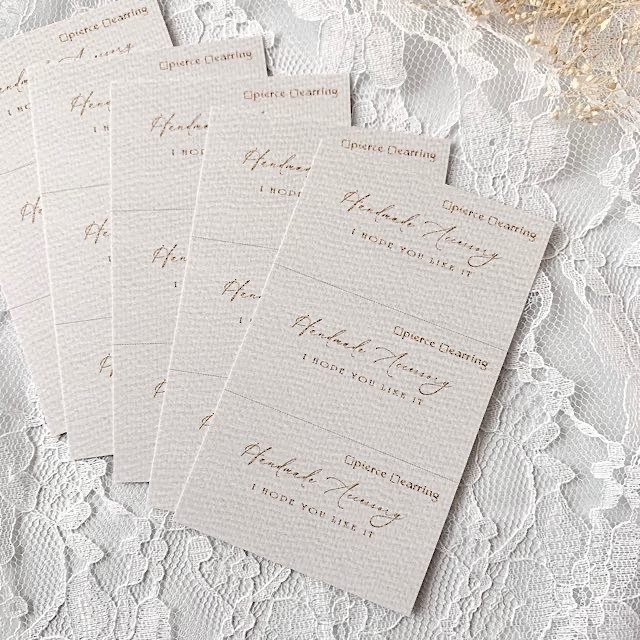 □pierce □earring
□pierce □earring
□pierce □earring
□pierce □earring
I HOPE
□pierce □earring
Handmade Accessory
I HOPE YOU LIKE IT
□pierce □earring
Handmade Accessory
I HOPE YOU LIKE IT
□pierce □earring
Handmade Accessory
I HOPE YOU LIKE IT